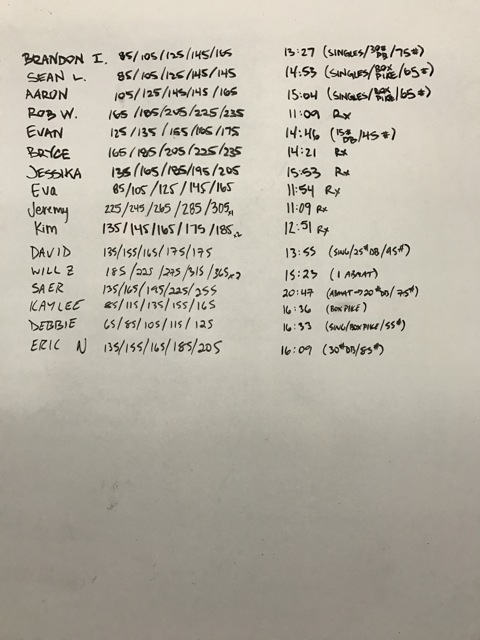 BRANDON I. 85/105/125/145/165 13:27 (SINGLES/30# DB/75#)
SEAN L. 85/105/125/145/145 14:53 (SINGLES/BOX PIKE/65#)
AARON 105/125/145/145/165 15:04 (SINGLES/BOX PIKE/65#)
ROB W. 165/185/205/225/235 11:09 Rx
EVAN 125/135/155/165/175 14:46 (15# DB/45#)
BRYCE 165/185/205/225/235 14:21 Rx
JESSIKA 135/165/185/195/205 15:53 Rx
Eva 85/105/125/145/165 11:54 Rx
Jeremy 225/245/265/285/305 11:09 Rx
Kim 135/145/165/175/185x2 12:51 Rx
DAVID 135/155/165/175/175 13:55 (SING/25# DB/95#)
WILL Z 185/225/275/315/365x2 15:23 (1 ABMAT)
SAER 135/165/195/225/255 20:47 (ABMAT→20# DB/75#)
KAYLEE 85/115/135/155/165 16:36 (BOX PIKE)
DEBBIE 65/85/105/115/125 16:33 (SING/BOX PIKE/55#)
ERIC N 135/155/165/185/205 16:09 (30# DB/85#)